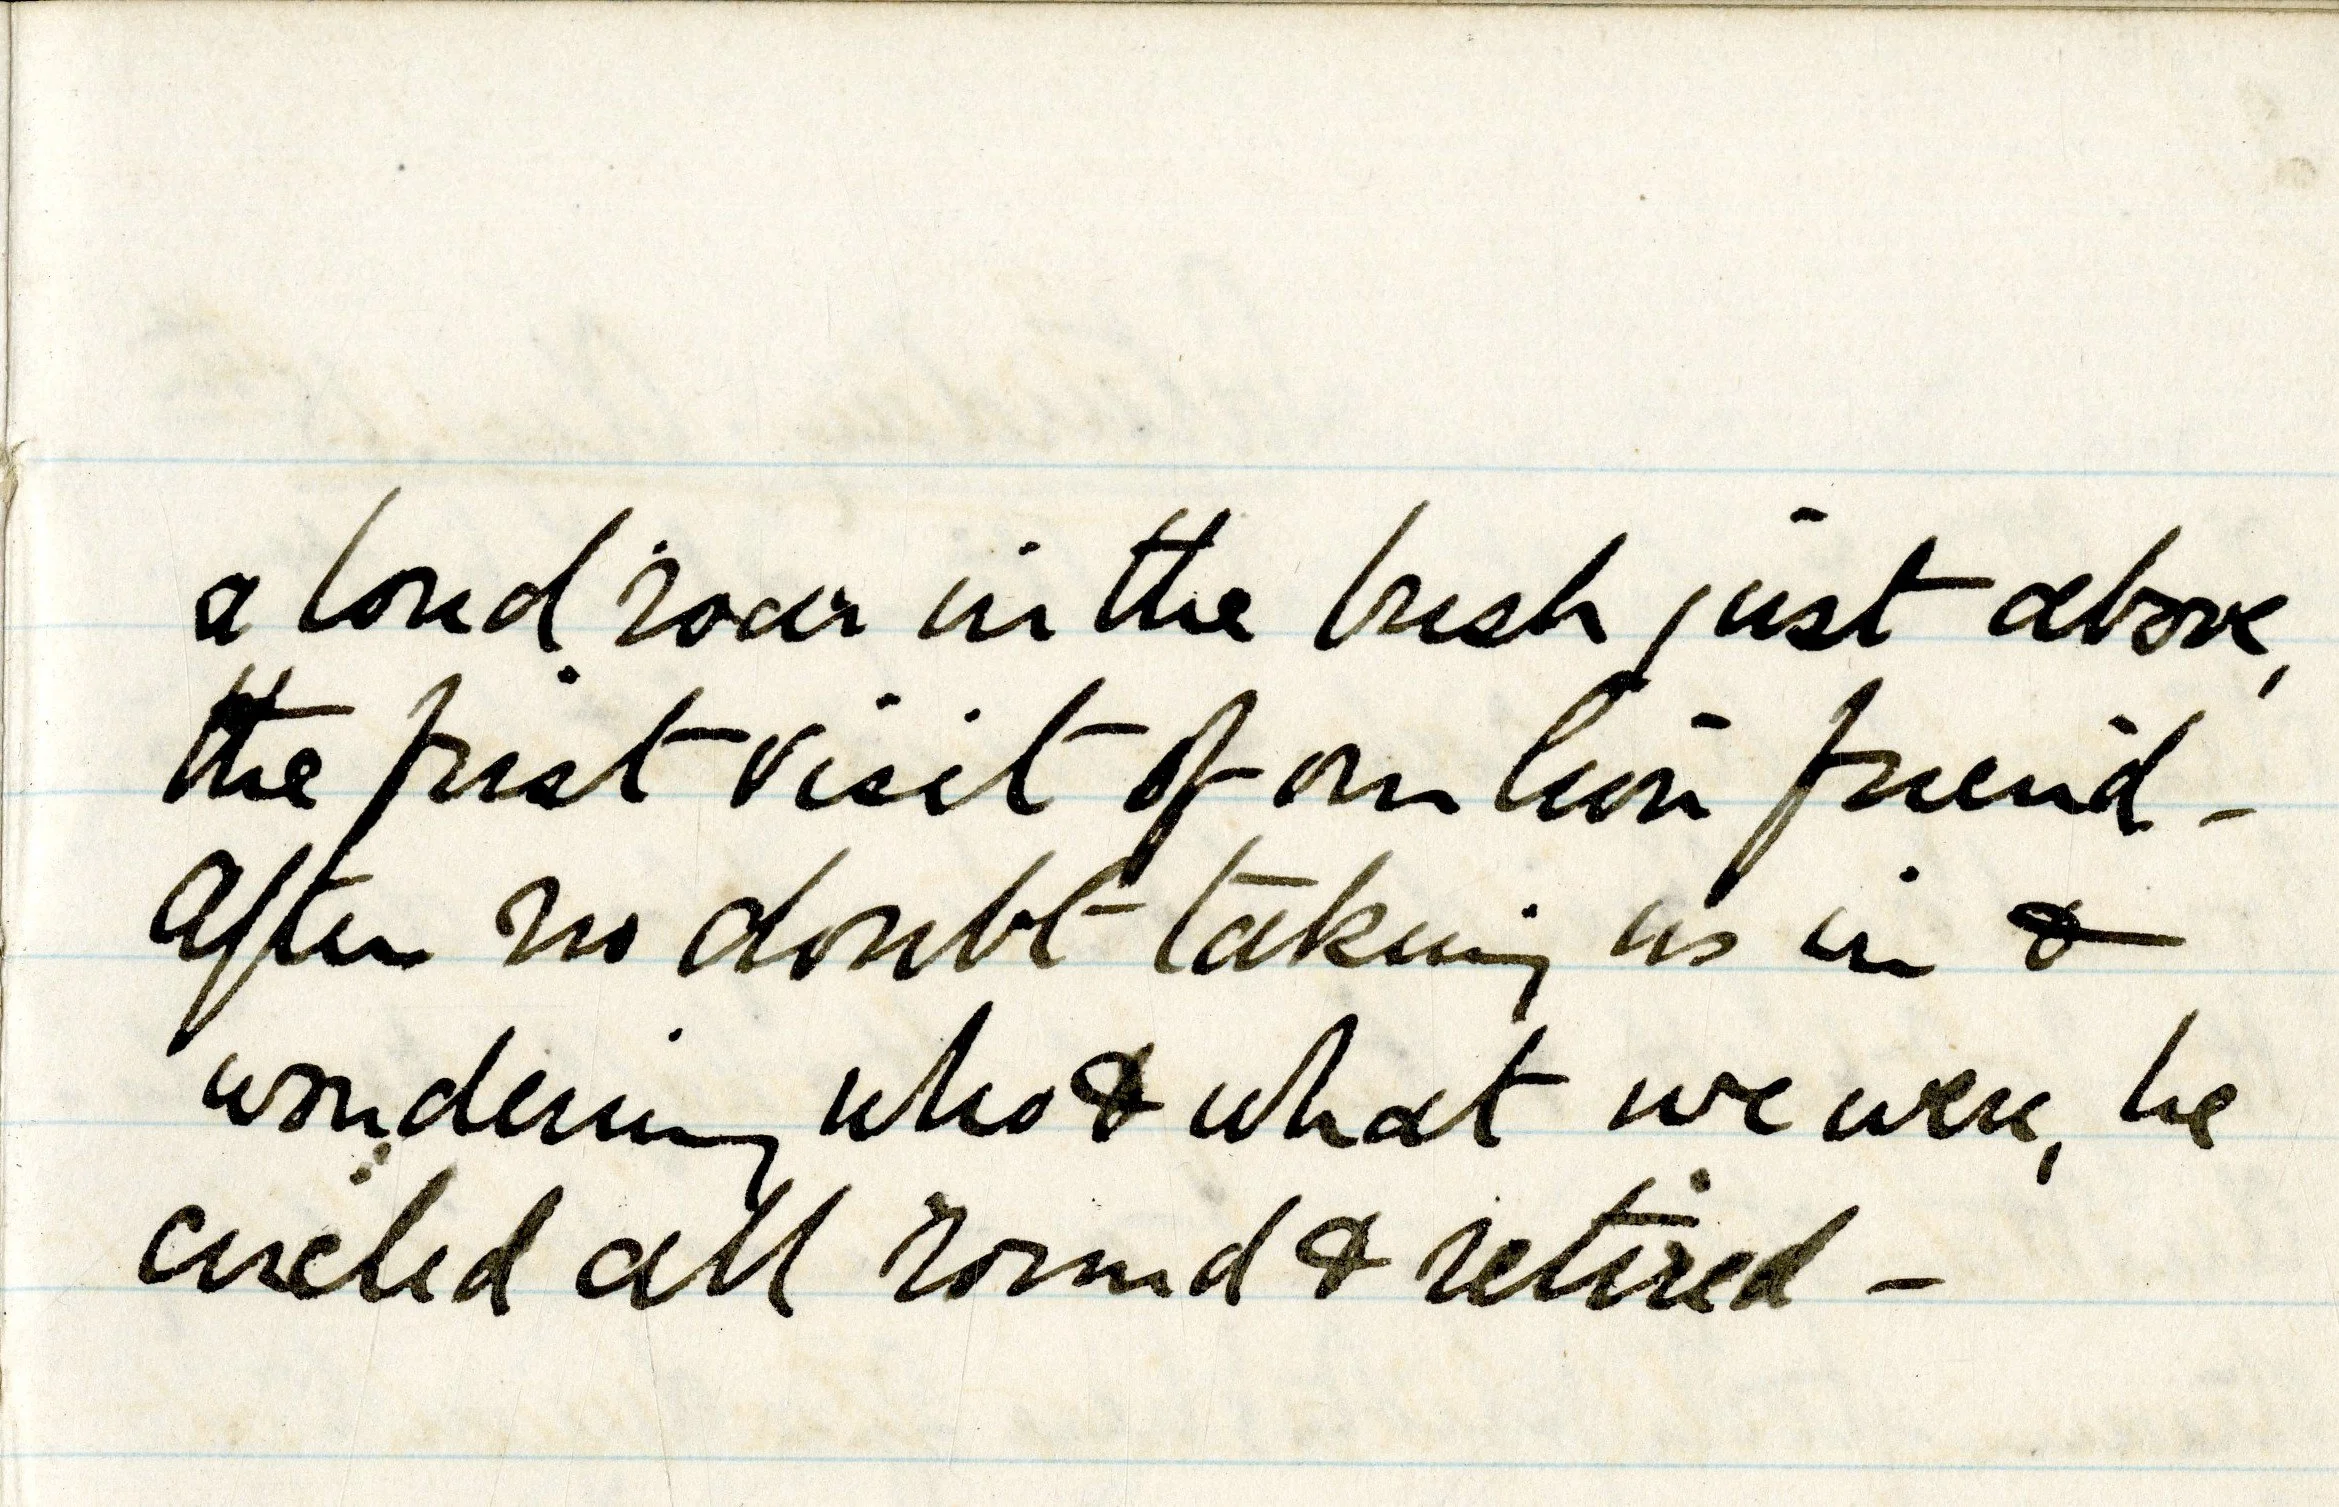 a loud roar in the bush just above,
the first visit of our lion friend -
After no doubt taking us in &
wondering who & what we were, he
circled all round & retired -